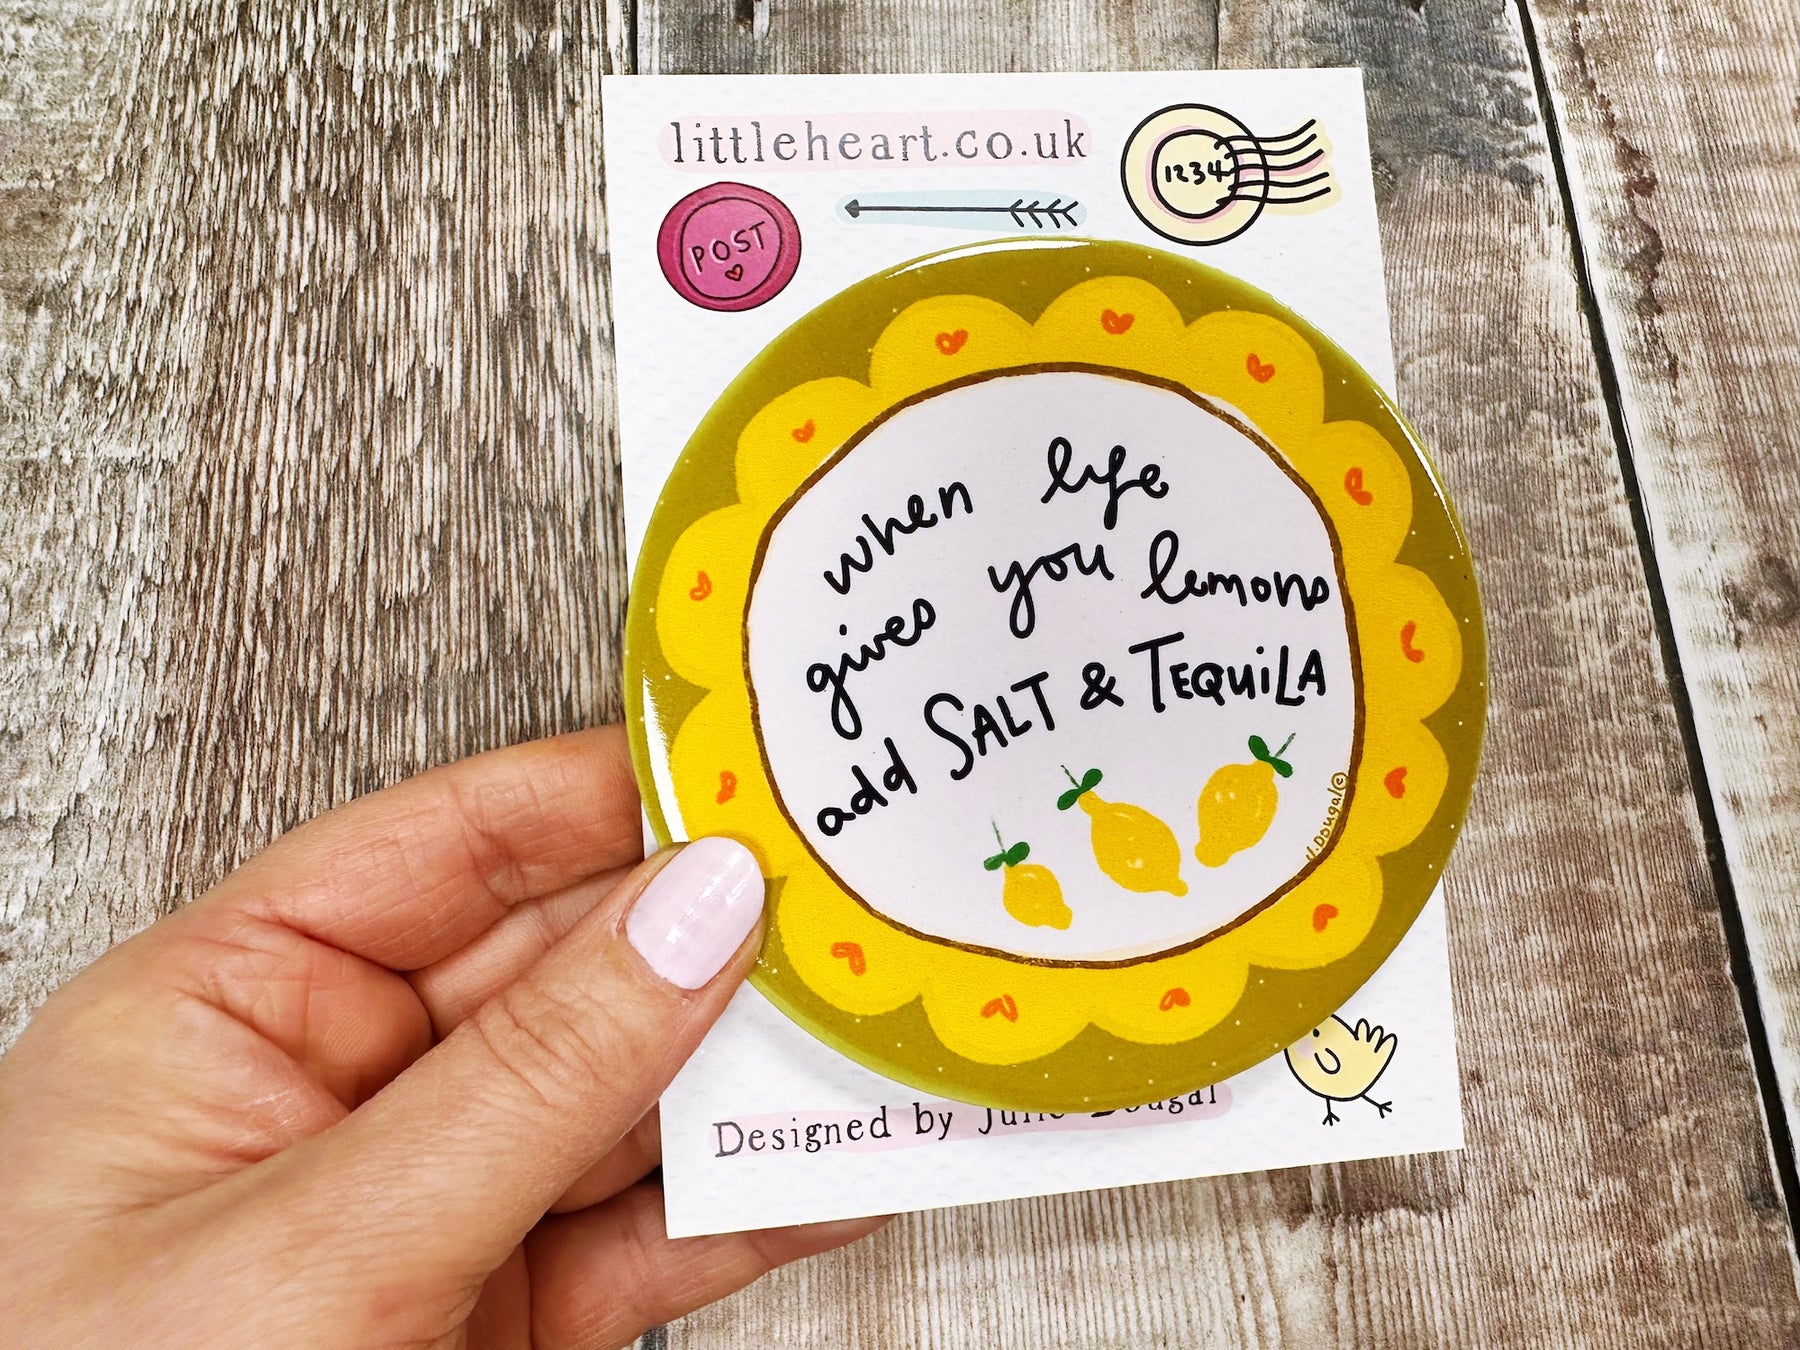 littleheart.co.uk
1234
POST
when life
gives you lemons
add SALT & TEQUILA
J.Dougal©
Designed by Julie Dougal